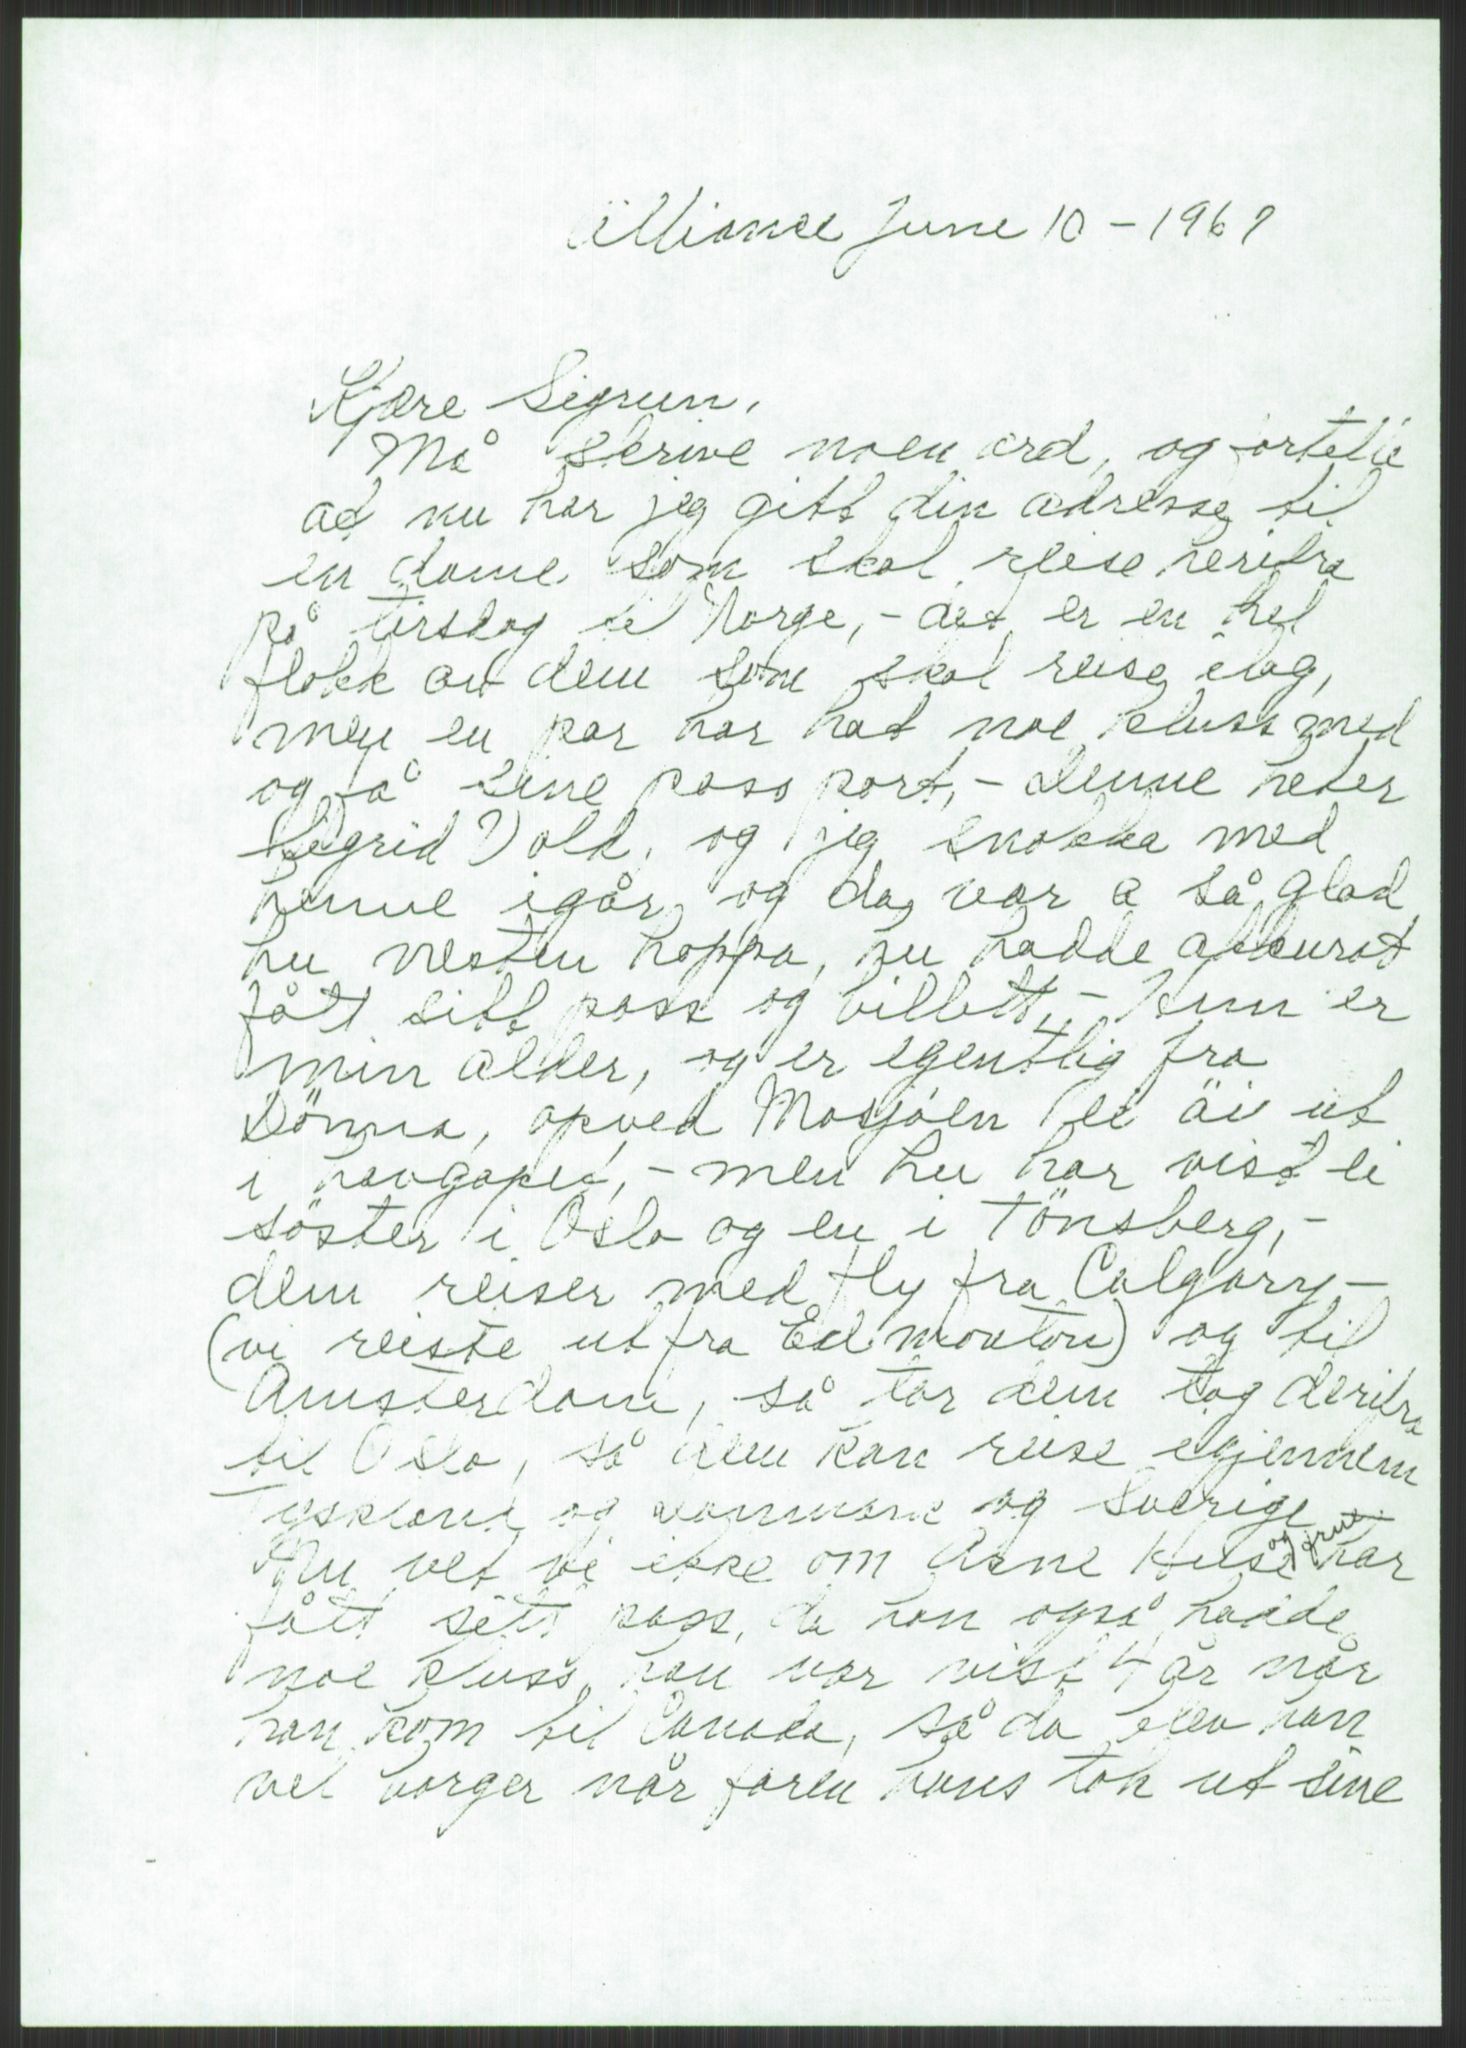 Alliance June 10 - 1967
Kjære Sigrun,
Må skrive noen ord, og fortelle
at nu har jeg gitt din adresse til
en dame som skal reise herifra
på tirsdag til Norge, - det er en hel
flokk av dem som skal reise ilag,
men en par har hat noe kluss med
og få sine pass port, - denne heter
Sigrid Vold, og jeg snakka med
henne igår, og da var a så glad
hu nesten hoppa, hu hadde akkurat
fått sitt pass og billett, - Hun er
min alder, og er egentlig fra
Dönna, opved Mosjøen ei öi ut
i havgapet, - men hu har vist ei
söster i Oslo og en i Tönsberg, -
dem reiser med fly fra Calgary -
(vi reiste ut fra Edmonton) og til
Amsterdam, så tar dem tog derifra
til Oslo, så dem kan reise igjennem
Tyskland og Danmark og Sverige
Nu vet vi ikke om Arne Huse og frue har
fått sitt pass, da han også hadde
noe kluss, han var vist 4 år når
han kom til Canada, så da blev han
vel borger når faren hans tok ut sine